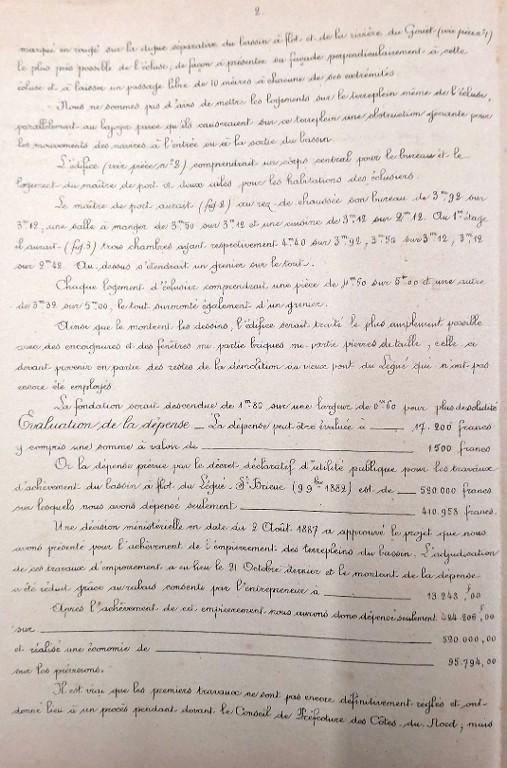 2.
marqué en rouge sur la digue séparative du bassin à flot et de la rivière du Gouet (voir pièce n° 1)
le plus près possible de l'écluse, de façon à présenter sa façade perpendiculairement à cette
écluse et à laisser un passage libre de 10 mètres à chacune de ses extrémités
- Nous ne sommes pas d'avis de mettre les logements sur le terreplein même de l'écluse,
parallèlement au bajoyer parce qu'ils causeraient sur ce terreplein une obstruction gênante pour
les mouvements des navires à l'entrée ou à la sortie du bassin.
L'édifice (voir pièce n° 2) comprendrait un corps central pour le bureau et le
logement du maître de port et deux ailes pour les habitations des éclusiers.
Le maître de port aurait (fig 2) au rez-de-chaussée son bureau de 3m92 sur
3m12, une salle à manger de 3m50 sur 3m12 et une cuisine de 3m12 sur 2m12. Au 1er étage
il aurait (fig. 3) trois chambres ayant respectivement 4m40 sur 3m92, 3m50 sur 3m12, 3m12
sur 2m42. Au dessus s'étendrait un grenier sur le tout.
Chaque logement d'éclusier comprendrait une pièce de 4m50 sur 5m00 et une autre
de 3m32 sur 5m00, le tout surmonté également d'un grenier.
Ainsi que le montrent les dessins, l'édifice serait traité le plus simplement possible
avec des encoignures et des fenêtres mi-partie briques mi-partie pierres de taille, celle ci
devant provenir en partie des restes de la démolition du vieux pont du Légué qui n'ont pas
encore été employés
La fondation serait descendue de 1m80 sur une largeur de 0m60 pour plus de solidité
Évaluation de la dépense _ La dépense peut être évaluée à ___ 17.200 francs
y compris une somme à valoir de ___ 1500 francs
Or la dépense prévue par le décret déclaratif d'utilité publique pour les travaux
d'achèvement du bassin à flot du Légué - St Brieuc (9 9bre 1882) est de ___ 520.000 francs
sur lesquels nous avons dépensé seulement ___ 410.958 francs.
Une décision ministérielle en date du 2 Août 1887 a approuvé le projet que nous
avons présenté pour l'achèvement de l'empierrement des terrepleins du bassin. L'adjudication
de ces travaux d'empierrement a eu lieu le 21 Octobre dernier et le montant de la dépense
a été réduit grâce au rabais consenti par l'entrepreneur à ___ 13 248f,00
Après l'achèvement de cet empierrement nous aurons donc dépensé seulement 424 206f,00
sur ___ 520.000,00
et réalisé une économie de ___ 95.794,00
sur les prévisions.
Il est vrai que les premiers travaux ne sont pas encore définitivement réglés et ont
donné lieu à un procès pendant devant le Conseil de Préfecture des Côtes du Nord; mais